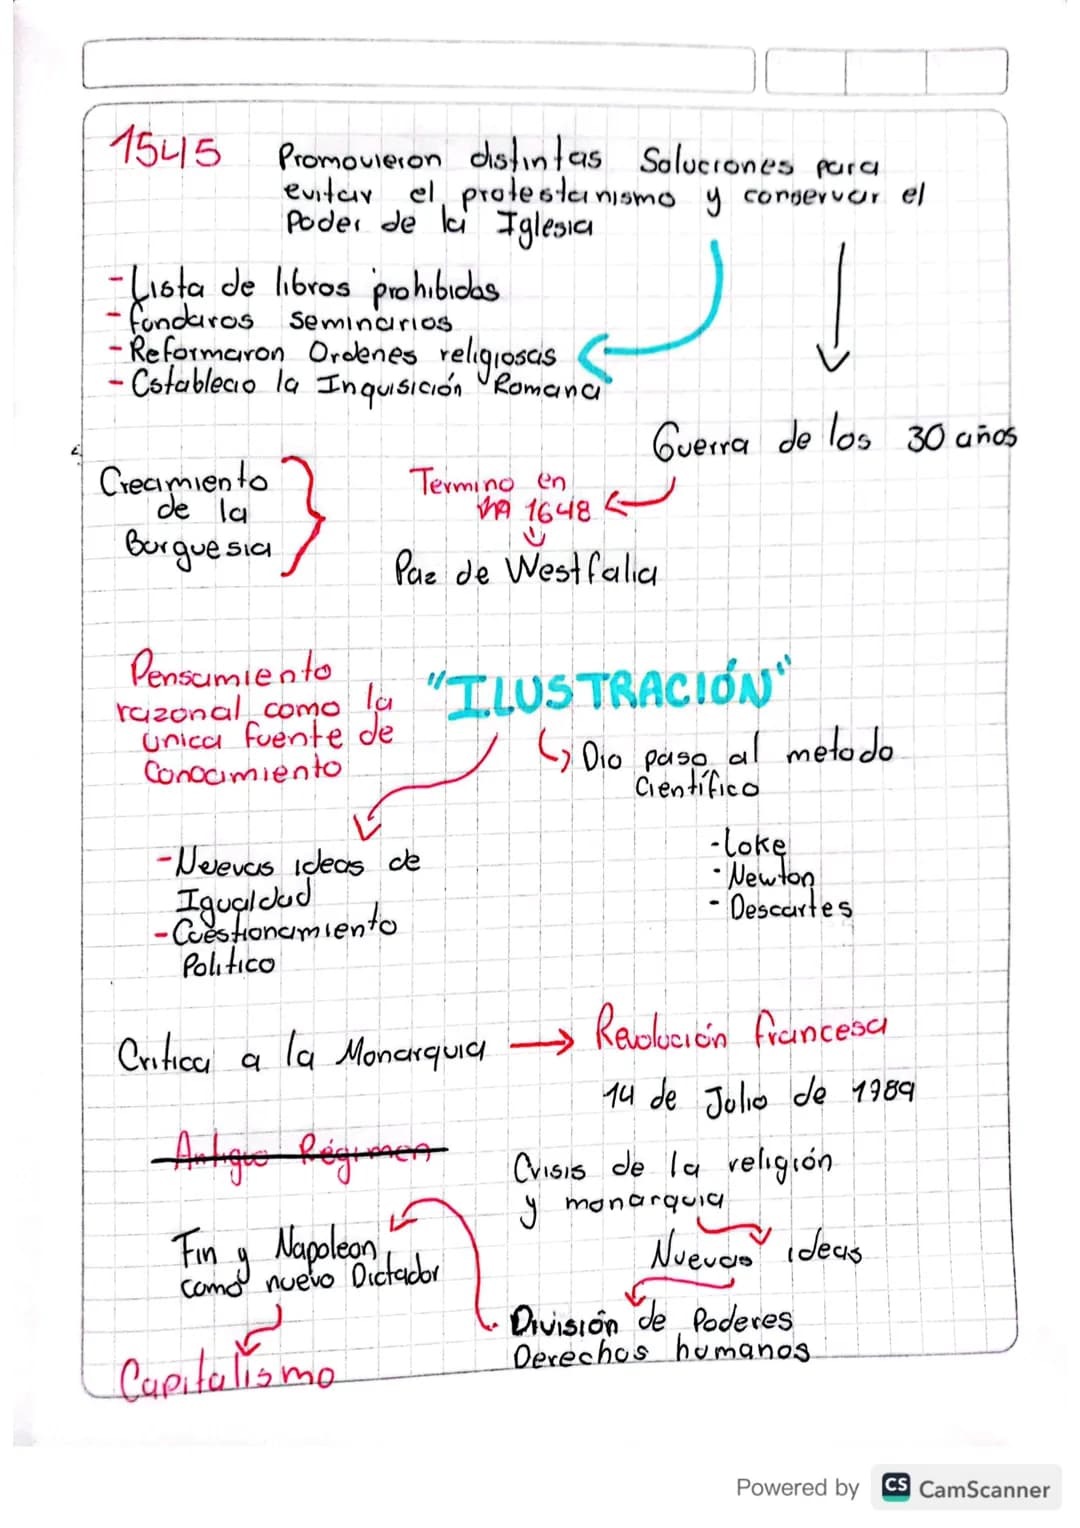 1545
Promovieron distintas Soluciones para
evitar el protestanismo y conservar el
Poder de la Iglesia
- Lista de libros prohibidos
- fundaros seminarios
- Reformaron Ordenes religiosas
- Establecio la Inquisición Romana
Guerra de los 30 años
Crecimiento
de la
Burguesia
Termino en
1648
Paz de Westfalia
Pensamiento
razonal como la
unica fuente de
Conocimiento
"ILUSTRACIÓN"
Dio paso al metodo
Científico
- Nuevas ideas de
Igualdad
- Cuestionamiento
Politico
- Loke
- Newton
- Descartes
Critica a la Monarquia → Revolución francesa
14 de Julio de 1989
Antiguo Régimen
Crisis de la religión
y monarquia
Nuevas ideas
Fin y Napoleon
como nuevo Dictador
División de Poderes
Derechos humanos
Capitalismo
Powered by CS CamScanner